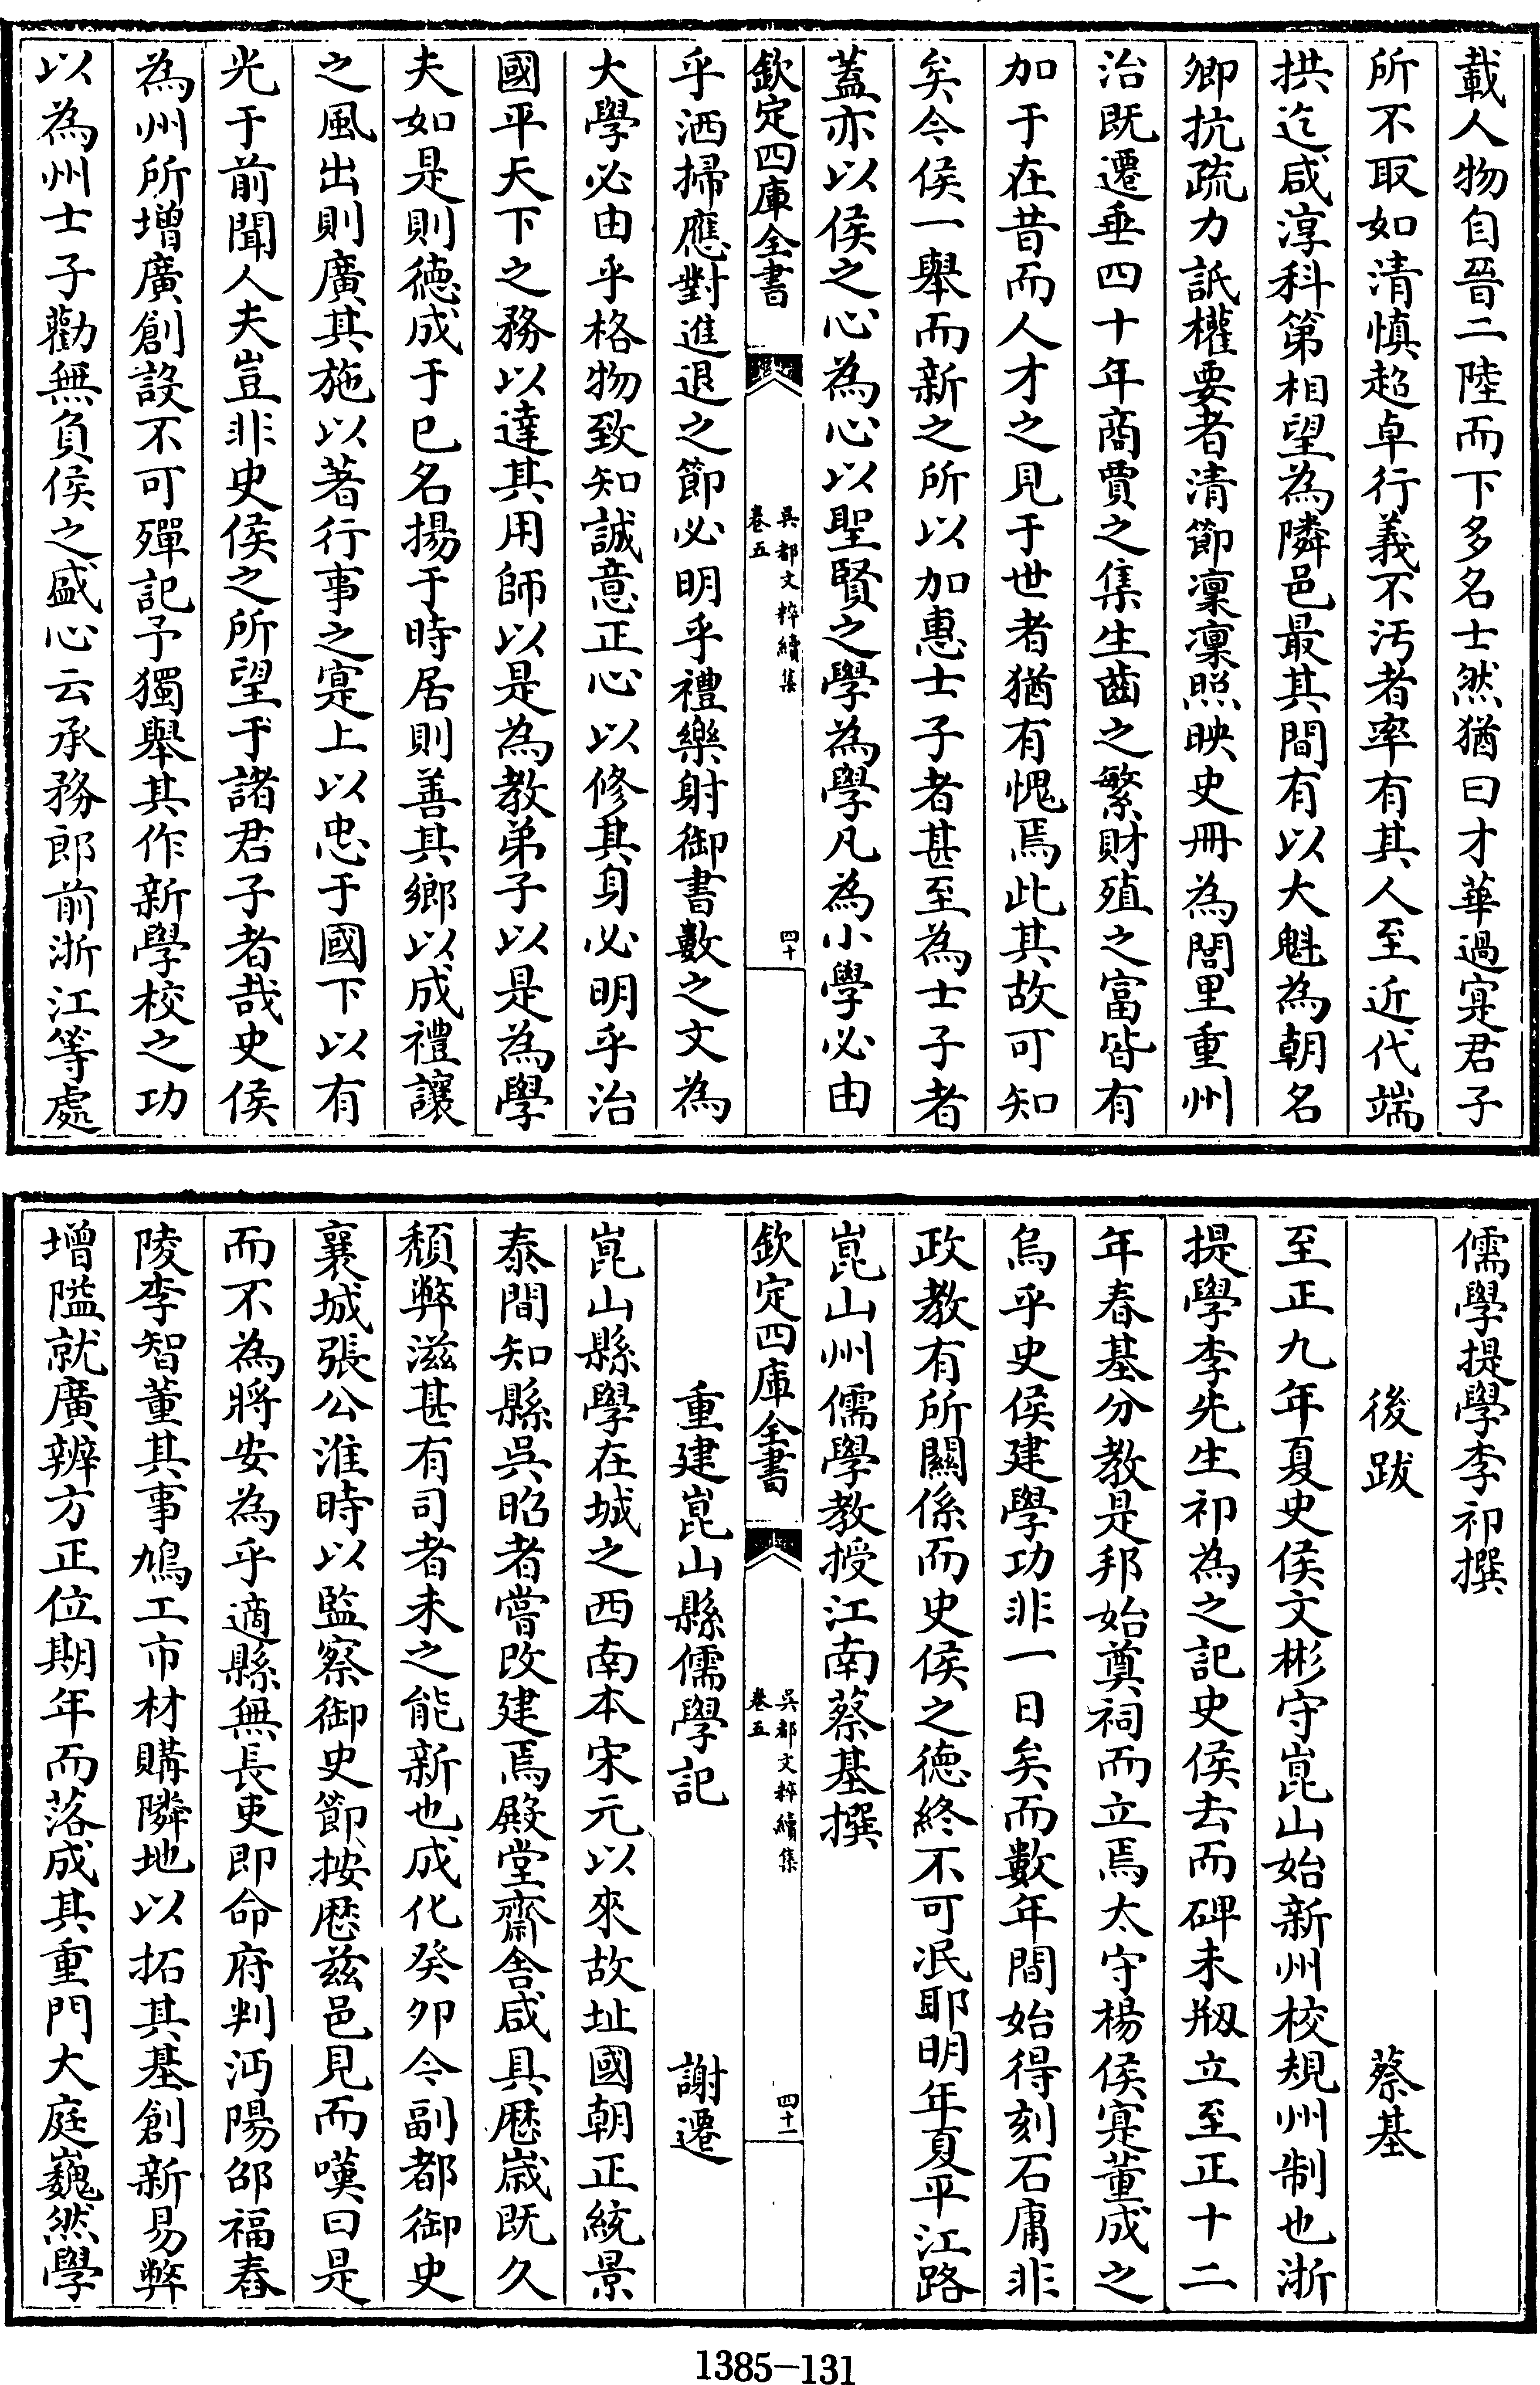 載人物自晉二陸而下多名士然猶曰才華過寔君子
所不取如清慎超卓行義不汚者率有其人至近代端
拱迄咸淳科第相望為隣邑最其間有以大魁為朝名
卿抗疏力詆權要者清節凜凜照映史冊為閭里重州
治既遷垂四十年商賈之集生齒之繁財殖之富皆有
加于在昔而人才之見于世者猶有愧焉此其故可知
矣今侯一舉而新之所以加惠士子者甚至為士子者
蓋亦以侯之心為心以聖賢之學為學凡為小學必由
欽定四庫全書
吳都文粹續集
卷五
四十
乎洒掃應對進退之節必明乎禮樂射御書數之文為
大學必由乎格物致知誠意正心以修其身必明乎治
國平天下之務以達其用師以是為教弟子以是為學
夫如是則德成于已名揚于時居則善其鄉以成禮讓
之風出則廣其施以著行事之寔上以忠于國下以有
光于前聞人夫豈非史侯之所望于諸君子者哉史侯
為州所增廣創設不可殫記予獨舉其作新學校之功
以為州士子勸無負侯之盛心云承務郎前浙江等處
儒學提學李祁撰
後跋 蔡基
至正九年夏史侯文彬守崑山始新州校規州制也浙
提學李先生祁為之記史侯去而碑未剏立至正十二
年春基分教是邦始奠祠而立焉太守楊侯寔董成之
烏乎史侯建學功非一日矣而數年間始得刻石庸非
政教有所關係而史侯之德終不可泯耶明年夏平江路
崑山州儒學教授江南蔡基撰
欽定四庫全書
吳都文粹續集
卷五
四十一
重建崑山縣儒學記 謝遷
崑山縣學在城之西南本宋元以來故址國朝正統景
泰間知縣吳昭者嘗改建焉殿堂齋舍咸具歷歲既久
頹弊滋甚有司者未之能新也成化癸卯今副都御史
襄城張公淮時以監察御史節按歷兹邑見而嘆曰是
而不為將安為乎適縣無長吏即命府判沔陽邵福春
陵李智董其事鳩工市材購隣地以拓其基創新易弊
增隘就廣辨方正位期年而落成其重門大庭巍然學
1385-131